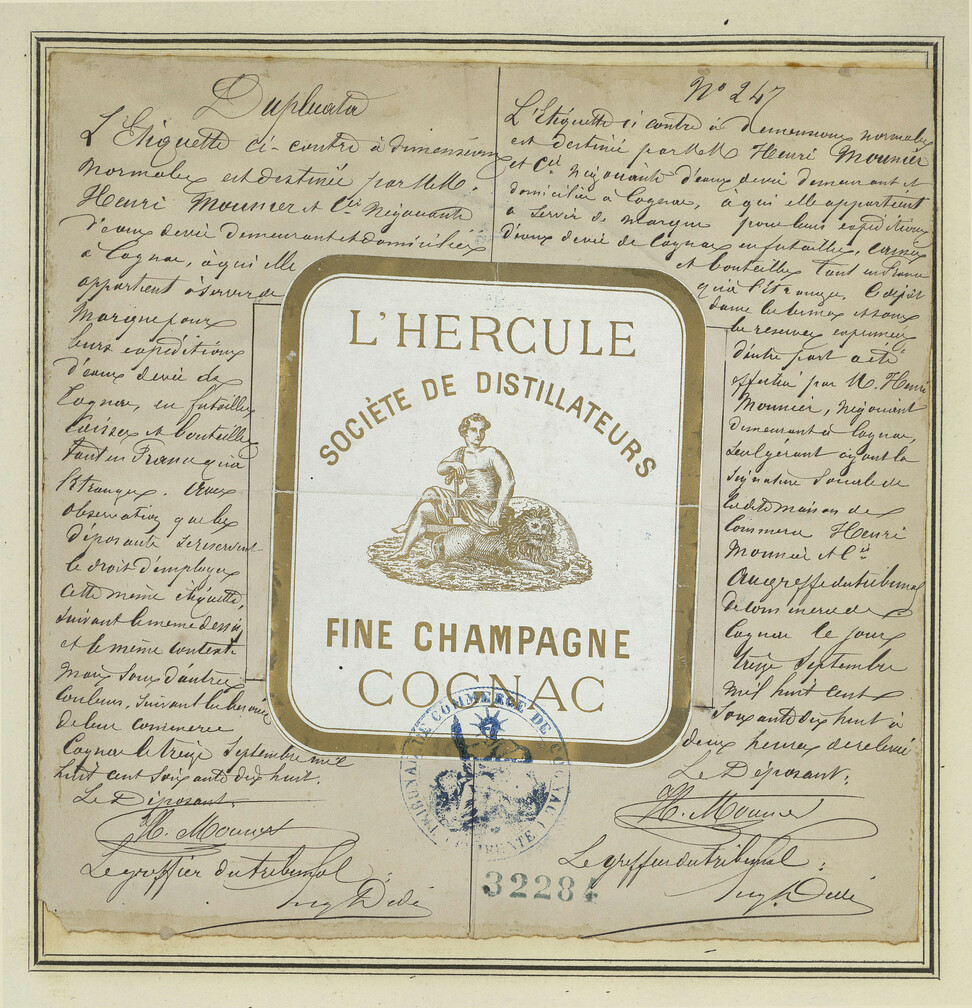 Duplicata
L'Etiquette ci-contre à dimensions
normales est destinée par MM.
Henri Mounier et Cie Négociants
d'eaux de vie demeurant et domiciliés
à Cognac, à qui elle
appartient à servir de
Marque pour
leurs expéditions
d'eaux de vie de
Cognac, en futailles
Caisses et bouteilles
tant en France qu'à
l'étranger. Avec
observation que les
déposants se réservent
le droit d'employer
cette même étiquette,
suivant le même dessin
et le même contexte
mais sous d'autres
couleurs, suivant le besoin
de leur commerce
Cognac le treize Septembre mil
huit cent soixante dix huit.
Le Déposant:
H. Mounier
Le greffier du tribunal:
Dédé
L'HERCULE
SOCIÈTE DE DISTILLATEURS
FINE CHAMPAGNE
COGNAC
TRIBUNAL DE COMMERCE DE COGNAC
32284
No 247
L'Etiquette ci contre à dimensions normales
est destinée par MM Henri Mounier
et Cie négociants d'eaux de vie demeurant et
domiciliés à Cognac, à qui elle appartient
à servir de marque pour leurs expéditions
d'eaux de vie de Cognac en futailles, caisses
et bouteilles tant en France
qu'à l'étranger. Le dépôt
dans les termes et sous
les réserves exprimées
d'autre part a été
effectué par M. Henri
Mounier, négociant
demeurant à Cognac,
seul gérant ayant la
signature sociale de
ladite maison de
Commerce Henri
Mounier et Cie
Au greffe du tribunal
de commerce de
Cognac le jour
treize Septembre
mil huit cent
soixante dix huit à
deux heures de relevée
Le Déposant:
H. Mounier
Le greffier du tribunal:
Dédé